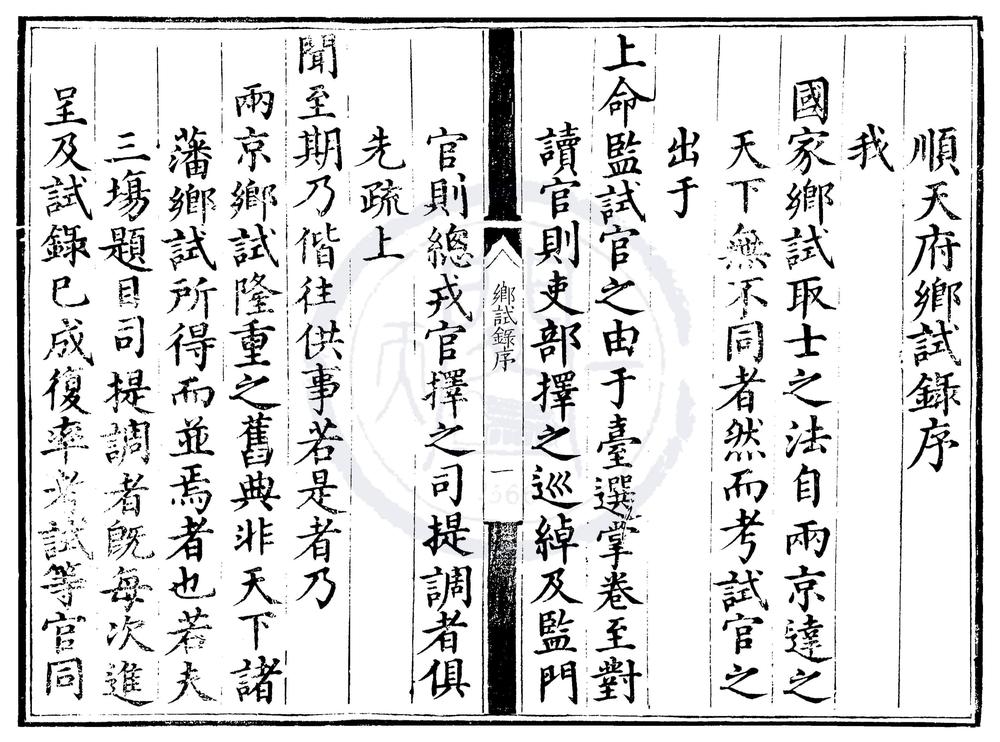 順天府鄉試錄序
我
國家鄉試取士之法自兩京達之
天下無不同者然而考試官之
出于
上命監試官之由于臺選掌卷至對
讀官則吏部擇之巡綽及監門
鄉試錄序
一
官則總戎官擇之司提調者俱
先疏上
聞至期乃偕往供事若是者乃
兩京鄉試隆重之舊典非天下諸
藩鄉試所得而並焉者也若夫
三場題目司提調者既每次進
呈及試錄已成復率考試等官同